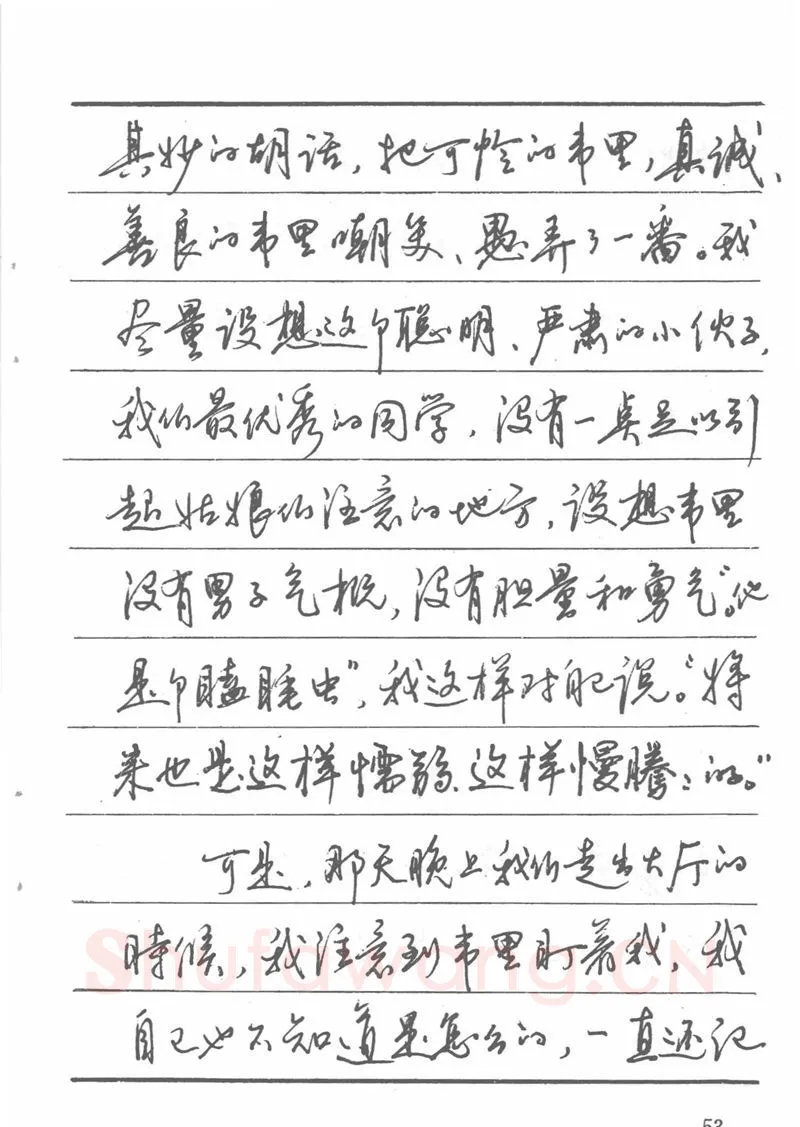 其妙的胡话，把可怜的韦里，真诚、
善良的韦里嘲笑、愚弄了一番。我
尽量设想这个聪明、严肃的小伙子，
我们最优秀的同学，没有一点足以引
起姑娘们注意的地方，设想韦里
没有男子气概，没有胆量和勇气。“他
是个瞌睡虫”，我这样对自己说。“将
来也是这样懦弱、这样慢腾腾的。”
可是，那天晚上我们走出大厅的
時候，我注意到韦里盯着我，我
自己也不知道是怎么的，一直还记
Shufawang.CN
53